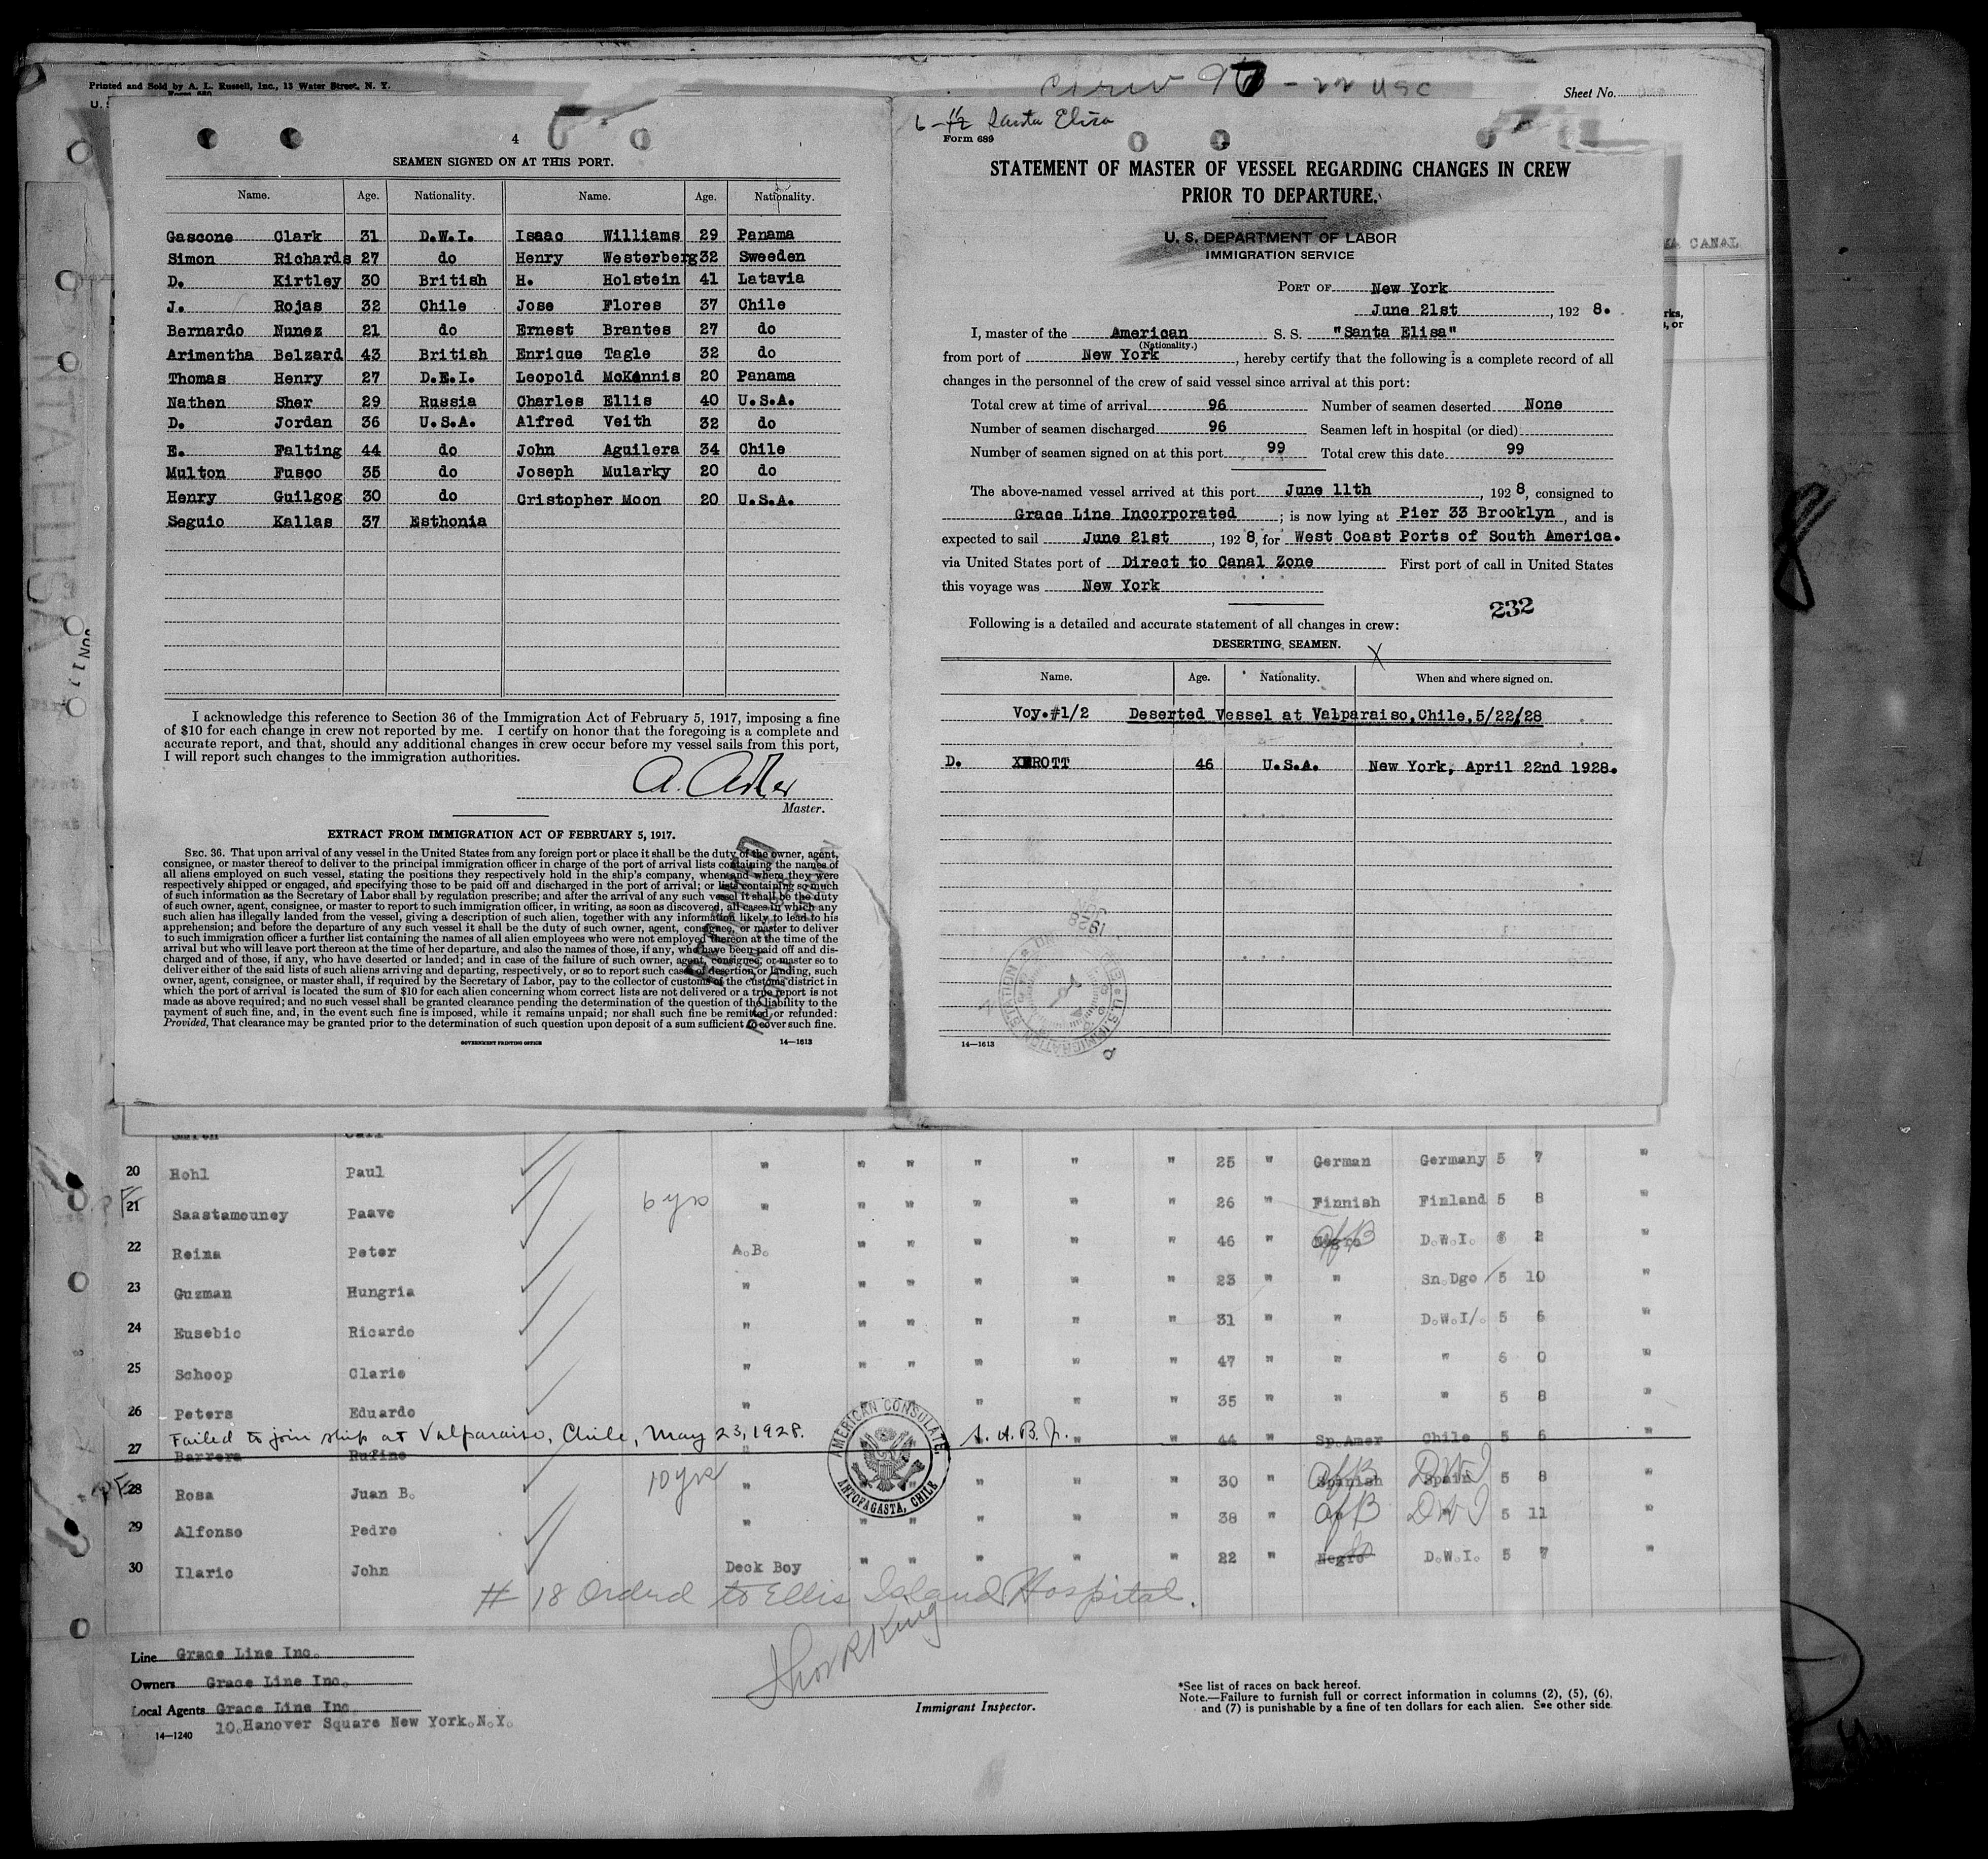 Printed and Sold by A. L. Russell, Inc., 13 Water Street, N. Y.
Sheet No.
4
SEAMEN SIGNED ON AT THIS PORT.
Name. Age. Nationality. Name. Age. Nationality.
Gascone Clark 31 D.W.I. Isaac Williams 29 Panama
Simon Richards 27 do Henry Westerberg 32 Sweeden
D. Kirtley 30 British H. Holstein 41 Latavia
J. Rojas 32 Chile Jose Flores 37 Chile
Bernardo Nunez 21 do Ernest Brantes 27 do
Arimentha Belzard 43 British Enrique Tagle 32 do
Thomas Henry 27 D.E.I. Leopold McKinnis 20 Panama
Nathen Sher 29 Russia Charles Ellis 40 U.S.A.
D. Jordan 36 U.S.A. Alfred Veith 32 do
E. Falting 44 do John Aguilera 34 Chile
Multon Fusco 35 do Joseph Mularky 20 do
Henry Guilgog 30 do Cristopher Moon 20 U.S.A.
Seguio Kallas 37 Esthonia
I acknowledge this reference to Section 36 of the Immigration Act of February 5, 1917, imposing a fine
of $10 for each change in crew not reported by me. I certify on honor that the foregoing is a complete and
accurate report, and that, should any additional changes in crew occur before my vessel sails from this port,
I will report such changes to the immigration authorities.
A. Adler
Master.
EXTRACT FROM IMMIGRATION ACT OF FEBRUARY 5, 1917.
SEC. 36. That upon arrival of any vessel in the United States from any foreign port or place it shall be the duty of the owner, agent,
consignee, or master thereof to deliver to the principal immigration officer in charge of the port of arrival lists containing the names of
all aliens employed on such vessel, stating the positions they respectively hold in the ship's company, when and where they were
respectively shipped or engaged, and specifying those to be paid off and discharged in the port of arrival; or lists containing so much
of such information as the Secretary of Labor shall by regulation prescribe; and after the arrival of any such vessel it shall be the duty
of such owner, agent, consignee, or master to report to such immigration officer, in writing, as soon as discovered, all cases in which any
such alien has illegally landed from the vessel, giving a description of such alien, together with any information likely to lead to his
apprehension; and before the departure of any such vessel it shall be the duty of such owner, agent, consignee, or master to deliver
to such immigration officer a further list containing the names of all alien employees who were not employed thereon at the time of the
arrival but who will leave port thereon at the time of her departure, and also the names of those, if any, who have been paid off and dis-
charged and of those, if any, who have deserted or landed; and in case of the failure of such owner, agent, consignee, or master so to
deliver either of the said lists of such aliens arriving and departing, respectively, or so to report such cases of desertion or landing, such
owner, agent, consignee, or master shall, if required by the Secretary of Labor, pay to the collector of customs of the customs district in
which the port of arrival is located the sum of $10 for each alien concerning whom correct lists are not delivered or a true report is not
made as above required; and no such vessel shall be granted clearance pending the determination of the question of the liability to the
payment of such fine, and, in the event such fine is imposed, while it remains unpaid; nor shall such fine be remitted or refunded:
Provided, That clearance may be granted prior to the determination of such question upon deposit of a sum sufficient to cover such fine.
GOVERNMENT PRINTING OFFICE 14—1613
Santa Elisa
Form 689
STATEMENT OF MASTER OF VESSEL REGARDING CHANGES IN CREW
PRIOR TO DEPARTURE.
U. S. DEPARTMENT OF LABOR
IMMIGRATION SERVICE
PORT OF New York
June 21st, 1928.
I, master of the American S. S. "Santa Elisa"
(Nationality.)
from port of New York, hereby certify that the following is a complete record of all
changes in the personnel of the crew of said vessel since arrival at this port:
Total crew at time of arrival 96 Number of seamen deserted None
Number of seamen discharged 96 Seamen left in hospital (or died)
Number of seamen signed on at this port 99 Total crew this date 99
The above-named vessel arrived at this port June 11th, 1928, consigned to
Grace Line Incorporated; is now lying at Pier 33 Brooklyn, and is
expected to sail June 21st, 1928, for West Coast Ports of South America.
via United States port of Direct to Canal Zone First port of call in United States
this voyage was New York
232
Following is a detailed and accurate statement of all changes in crew:
DESERTING SEAMEN.
X
Name. Age. Nationality. When and where signed on.
Voy.#1/2 Deserted Vessel at Valparaiso, Chile, 5/22/28
D. 46 U.S.A. New York, April 22nd 1928.
14—1613
CANAL
20 Hohl Paul " " " " " " 25 " German Germany 5 7 "
21 Saastamouney Paave 6 yrs " " " " " " 26 " Finnish Finland 5 8 "
22 Reina Peter A.B. " " " " " 46 " Negro Af B D.W.I. 5 2 "
23 Guzman Hungria " " " " " " 23 " " Sn.Dgo 5 10 "
24 Eusebio Ricardo " " " " " " 31 " " D.W.I/. 5 6 "
25 Schoop Claric " " " " " " 47 " " " 6 0 "
26 Peters Eduardo " " " " 35 " " " 5 8 "
Failed to join ship at Valparaiso, Chile, May 23, 1928.
27 Barrera Rufino 44 " Sp.Amer Chile 5 6 "
AMERICAN CONSULATE, ANTOFAGASTA, CHILE
28 Rosa Juan B. 10 yrs " " " " 30 " Spanish Af B Spain DWI 5 8 "
29 Alfonso Pedro " " " " " " 38 " Af B DWI 5 11 "
30 Ilario John Deck Boy " " " " " 22 " Negro D.W.I. 5 7 "
# 18 Ordrd to Ellis Island Hospital.
Line Grace Line Inc.
Owners Grace Line Inc.
Local Agents Grace Line Inc
10.Hanover Square New York.N.Y.
14—1240
Immigrant Inspector.
*See list of races on back hereof.
Note.—Failure to furnish full or correct information in columns (2), (5), (6),
and (7) is punishable by a fine of ten dollars for each alien. See other side